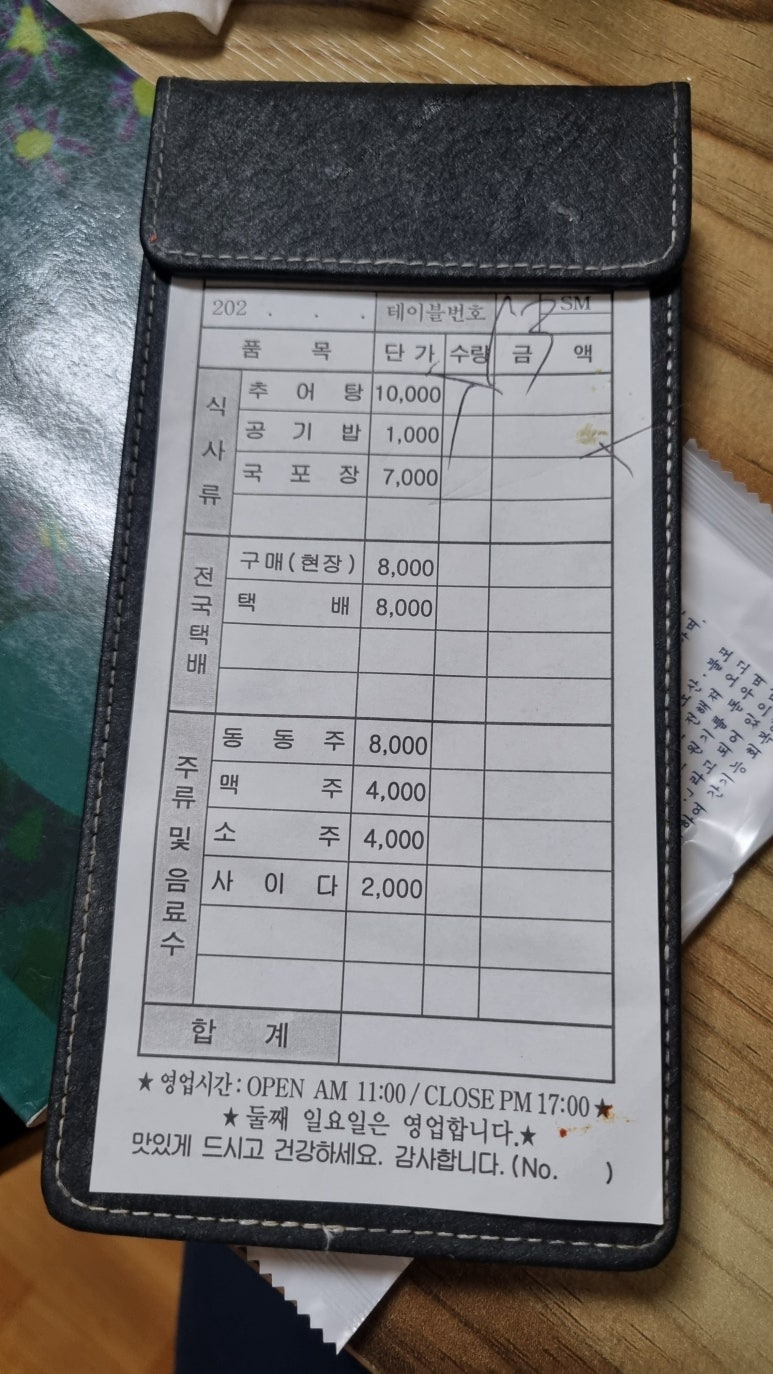 202 . . . 테이블번호 13 SM
품 목 단 가 수량 금 액
식사류
추 어 탕 10,000
공 기 밥 1,000
국 포 장 7,000
전국택배
구매(현장) 8,000
택 배 8,000
주류 및 음료수
동 동 주 8,000
맥 주 4,000
소 주 4,000
사 이 다 2,000
합 계
★ 영업시간 : OPEN AM 11:00 / CLOSE PM 17:00 ★
★ 둘째 일요일은 영업합니다.★
맛있게 드시고 건강하세요. 감사합니다. (No. )